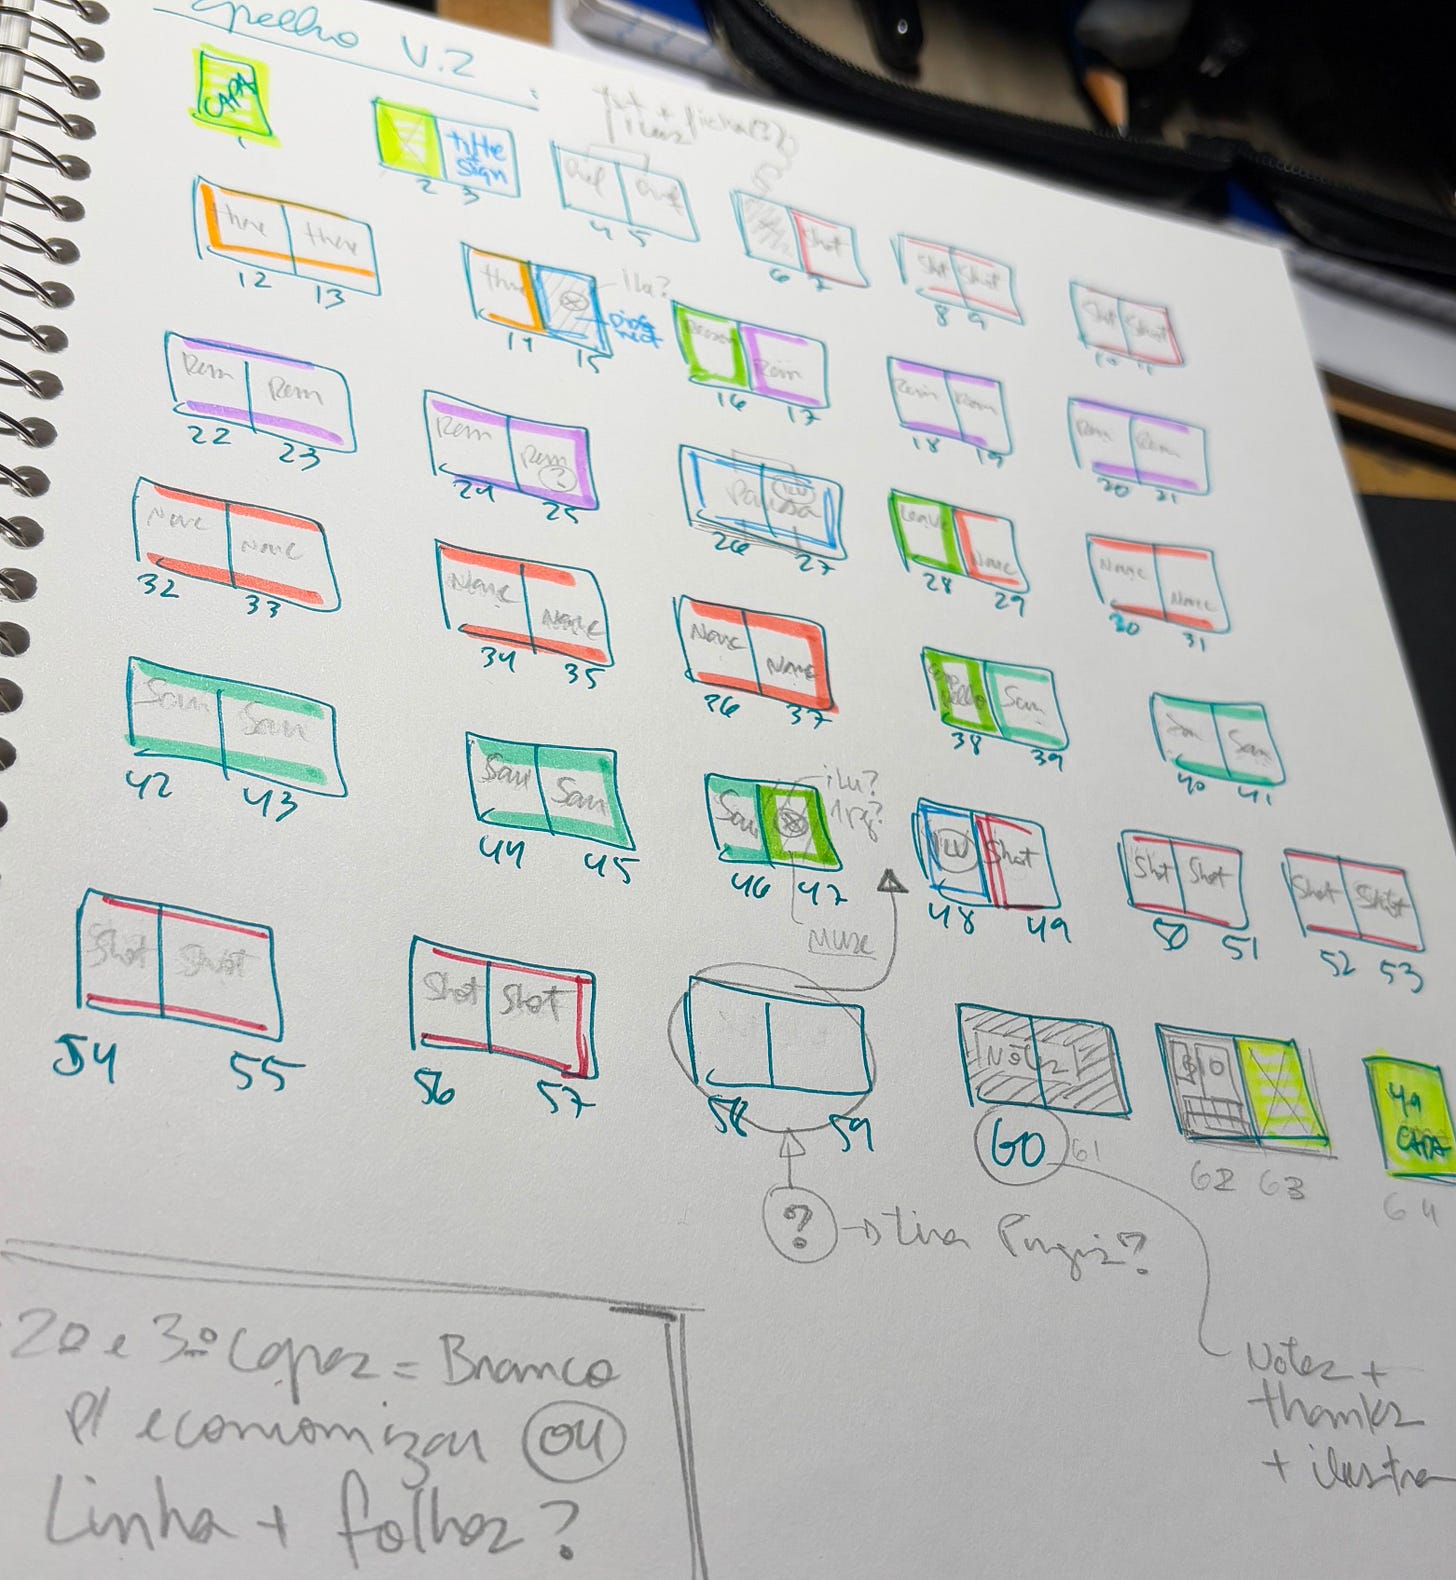 Espelho V.2
CAPA
1
title
sign
2 3
4 5
Shot
6 7
Shot Shot
8 9
Shot Shot
10 11
three three
12 13
three
ilu?
14 15
Rem
16 17
Rem Rem
18 19
Rem Rem
20 21
Rem Rem
22 23
Rem Rem
?
24 25
Pausa
ILU
26 27
Leave None
28 29
None None
30 31
None None
32 33
None None
34 35
None None
36 37
Sam
38 39
Sam Sam
40 41
Sam Sam
42 43
Sam Sam
44 45
Sam
ilu?
46 47
ILU Shot
48 49
Shot Shot
50 51
Shot Shot
52 53
Shot Shot
54 55
Shot Shot
56 57
58 59
Notes
60 61
BIO
62 63
4a
CAPA
64
? → tira
Notes +
thanks
+ ilustra
2ª e 3ª capas = Branco
p/ economizar ou
Linha + folhas?